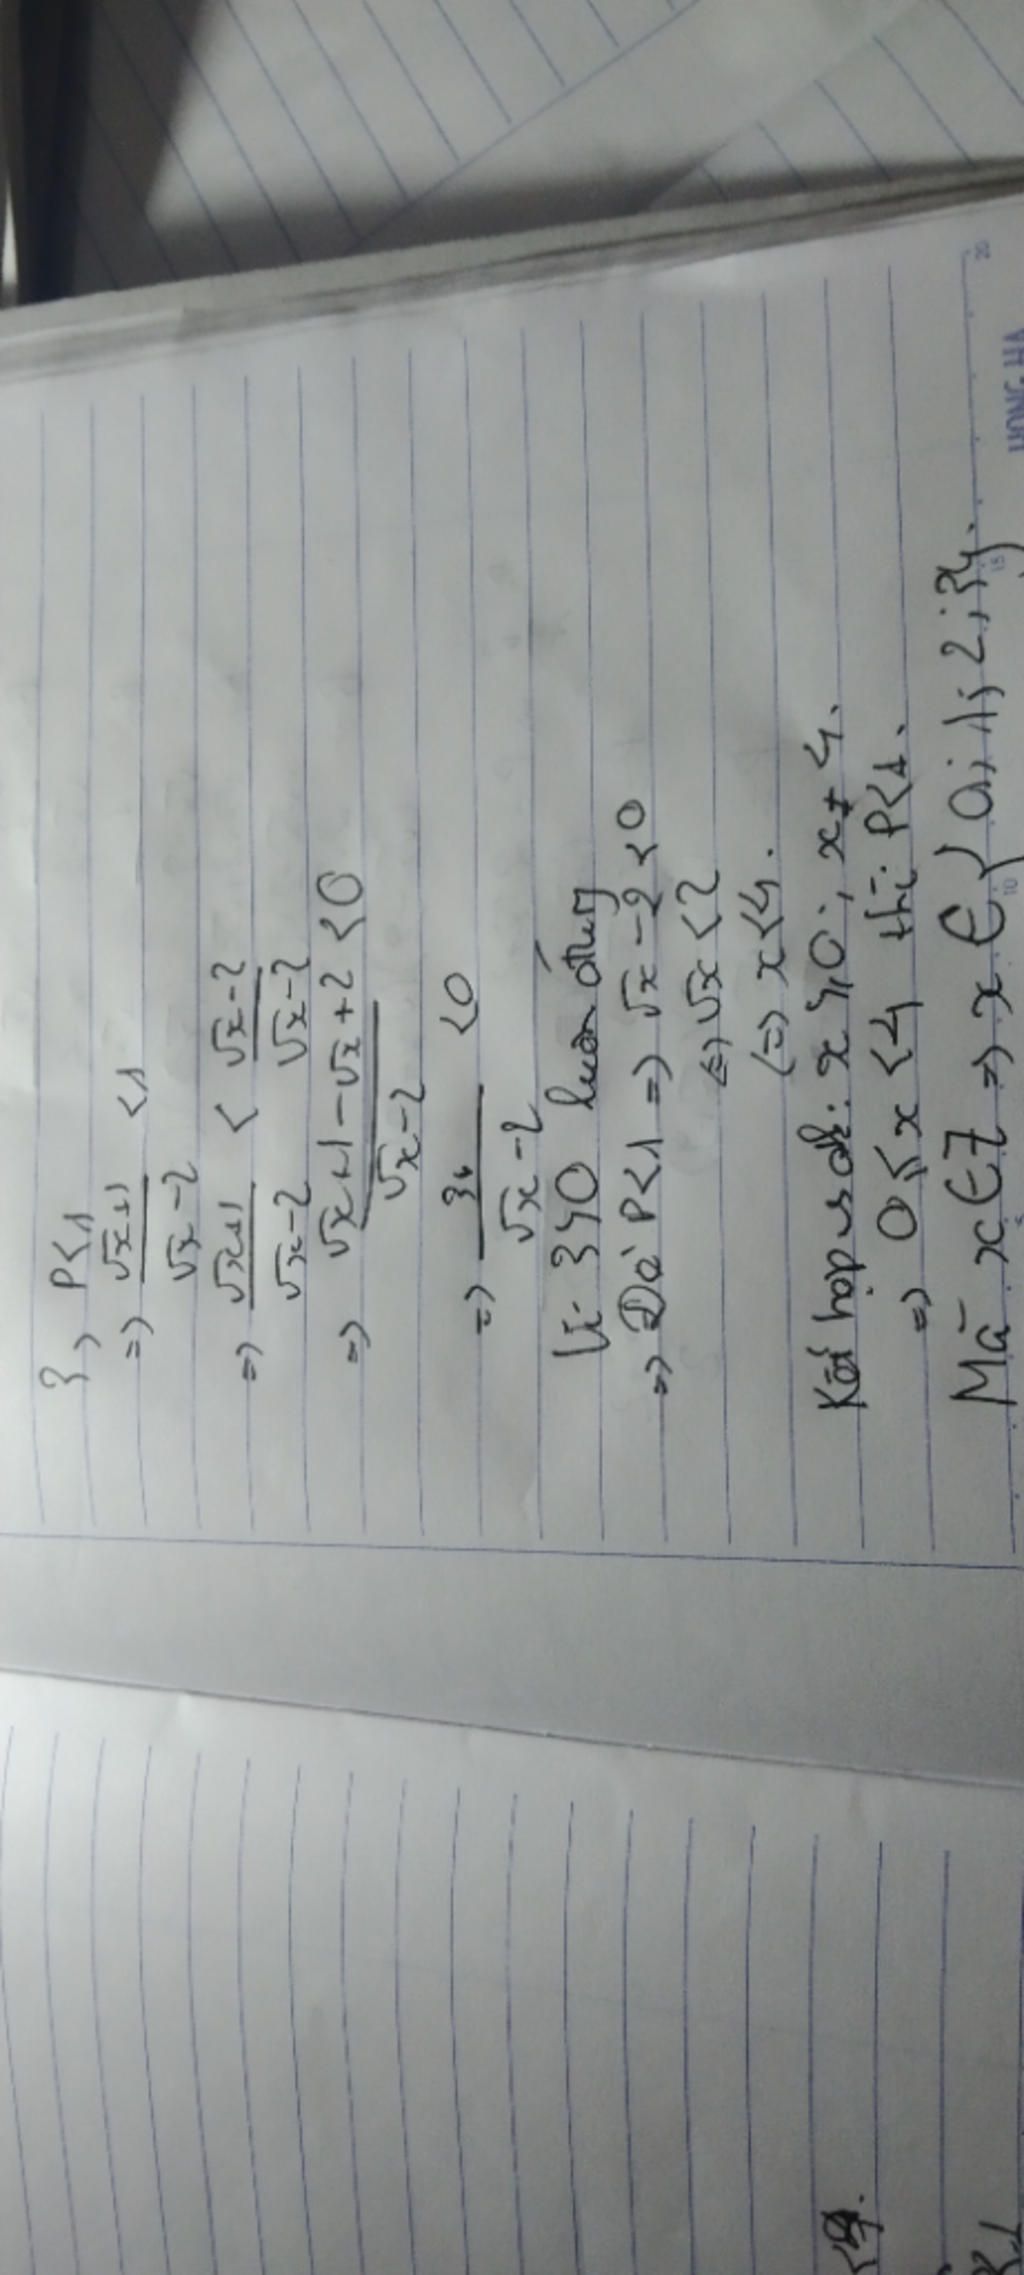 3, P<1
=> √x+1 / √x-2 <1
=> √x+1 / √x-2 < √x-2 / √x-2
=> √x+1-√x+2 / √x-2 <0
=> 3 / √x-2 <0
Vì 3>0 luôn đúng
=> Để P<1 => √x-2<0
<=> √x<2
<=> x<4.
Kết hợp vs đk: x≥0; x≠4.
=> 0≤x<4 thì P<1.
Mà x∈Z => x∈{0;1;2;3}.
10
15
20
HONG HA